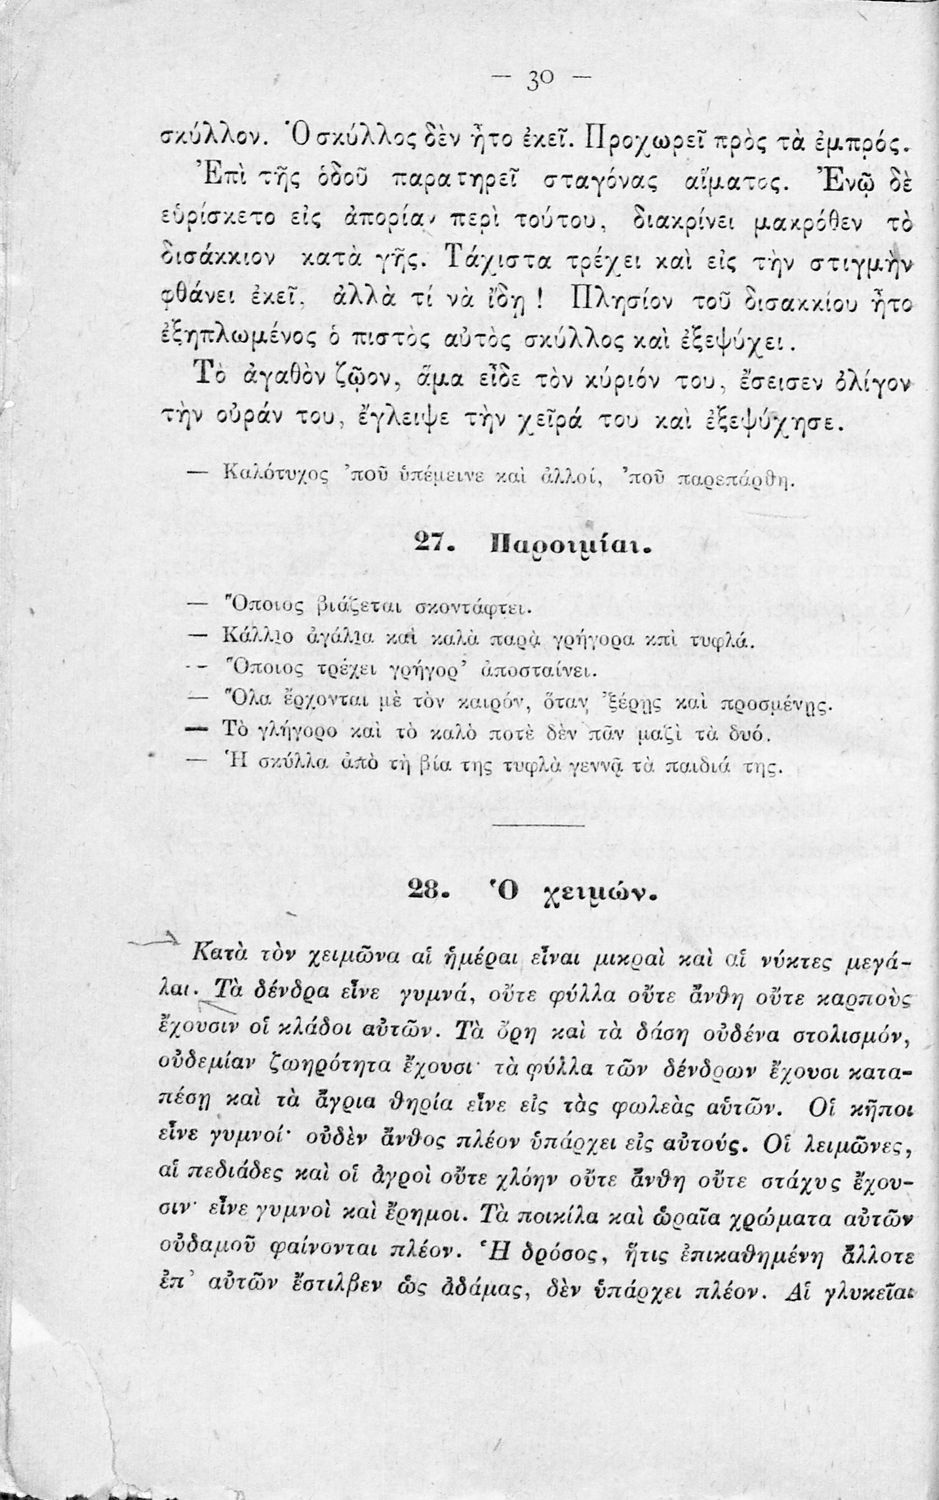 — 30 —
σκύλλον. Ὁ σκύλλος δὲν ἦτο ἐκεῖ. Προχωρεῖ πρὸς τὰ ἐμπρός.
Ἐπὶ τῆς ὁδοῦ παρατηρεῖ σταγόνας αἵματος. Ἐνῷ δὲ
εὑρίσκετο εἰς ἀπορίαν περὶ τούτου, διακρίνει μακρόθεν τὸ
δισάκκιον κατὰ γῆς. Τάχιστα τρέχει καὶ εἰς τὴν στιγμὴν
φθάνει ἐκεῖ, ἀλλὰ τί νὰ ἴδῃ ! Πλησίον τοῦ δισακκίου ἦτο
ἐξηπλωμένος ὁ πιστὸς αὐτὸς σκύλλος καὶ ἐξεψύχει.
Τὸ ἀγαθὸν ζῷον, ἅμα εἶδε τὸν κύριόν του, ἔσεισεν ὀλίγον
τὴν οὐράν του, ἔγλειψε τὴν χεῖρά του καὶ ἐξεψύχησε.
— Καλότυχος 'ποῦ ὑπέμεινε καὶ ἀλλοί, 'ποῦ παρεπάρθη.
27. Παροιμίαι.
— Ὅποιος βιάζεται σκοντάφτει.
— Κάλλιο ἀγάλια καὶ καλὰ παρὰ γρήγορα κπὶ τυφλά.
-- Ὅποιος τρέχει γρήγορ' ἀποσταίνει.
— Ὅλα ἔρχονται μὲ τὸν καιρόν, ὅταν 'ξέρῃς καὶ προσμένῃς.
— Τὸ γλήγορο καὶ τὸ καλὸ ποτὲ δὲν πᾶν μαζὶ τὰ δυό.
— Ἡ σκύλλα ἀπὸ τὴ βία της τυφλὰ γεννᾷ τὰ παιδιά της.
28. Ὁ χειμών.
Κατὰ τὸν χειμῶνα αἱ ἡμέραι εἶναι μικραὶ καὶ αἱ νύκτες μεγά-
λαι. Τὰ δένδρα εἶνε γυμνά, οὔτε φύλλα οὔτε ἄνθη οὔτε καρποὺς
ἔχουσιν οἱ κλάδοι αὐτῶν. Τὰ ὄρη καὶ τὰ δάση οὐδένα στολισμόν,
οὐδεμίαν ζωηρότητα ἔχουσι· τὰ φύλλα τῶν δένδρων ἔχουσι κατα-
πέσῃ καὶ τὰ ἄγρια θηρία εἶνε εἰς τὰς φωλεὰς αὑτῶν. Οἱ κῆποι
εἶνε γυμνοί· οὐδὲν ἄνθος πλέον ὑπάρχει εἰς αὐτούς. Οἱ λειμῶνες,
αἱ πεδιάδες καὶ οἱ ἀγροὶ οὔτε χλόην οὔτε ἄνθη οὔτε στάχυς ἔχου-
σιν· εἶνε γυμνοὶ καὶ ἔρημοι. Τὰ ποικίλα καὶ ὡραῖα χρώματα αὐτῶν
οὐδαμοῦ φαίνονται πλέον. Ἡ δρόσος, ἥτις ἐπικαθημένη ἄλλοτε
ἐπ' αὐτῶν ἔστιλβεν ὡς ἀδάμας, δὲν ὑπάρχει πλέον. Αἱ γλυκεῖαι